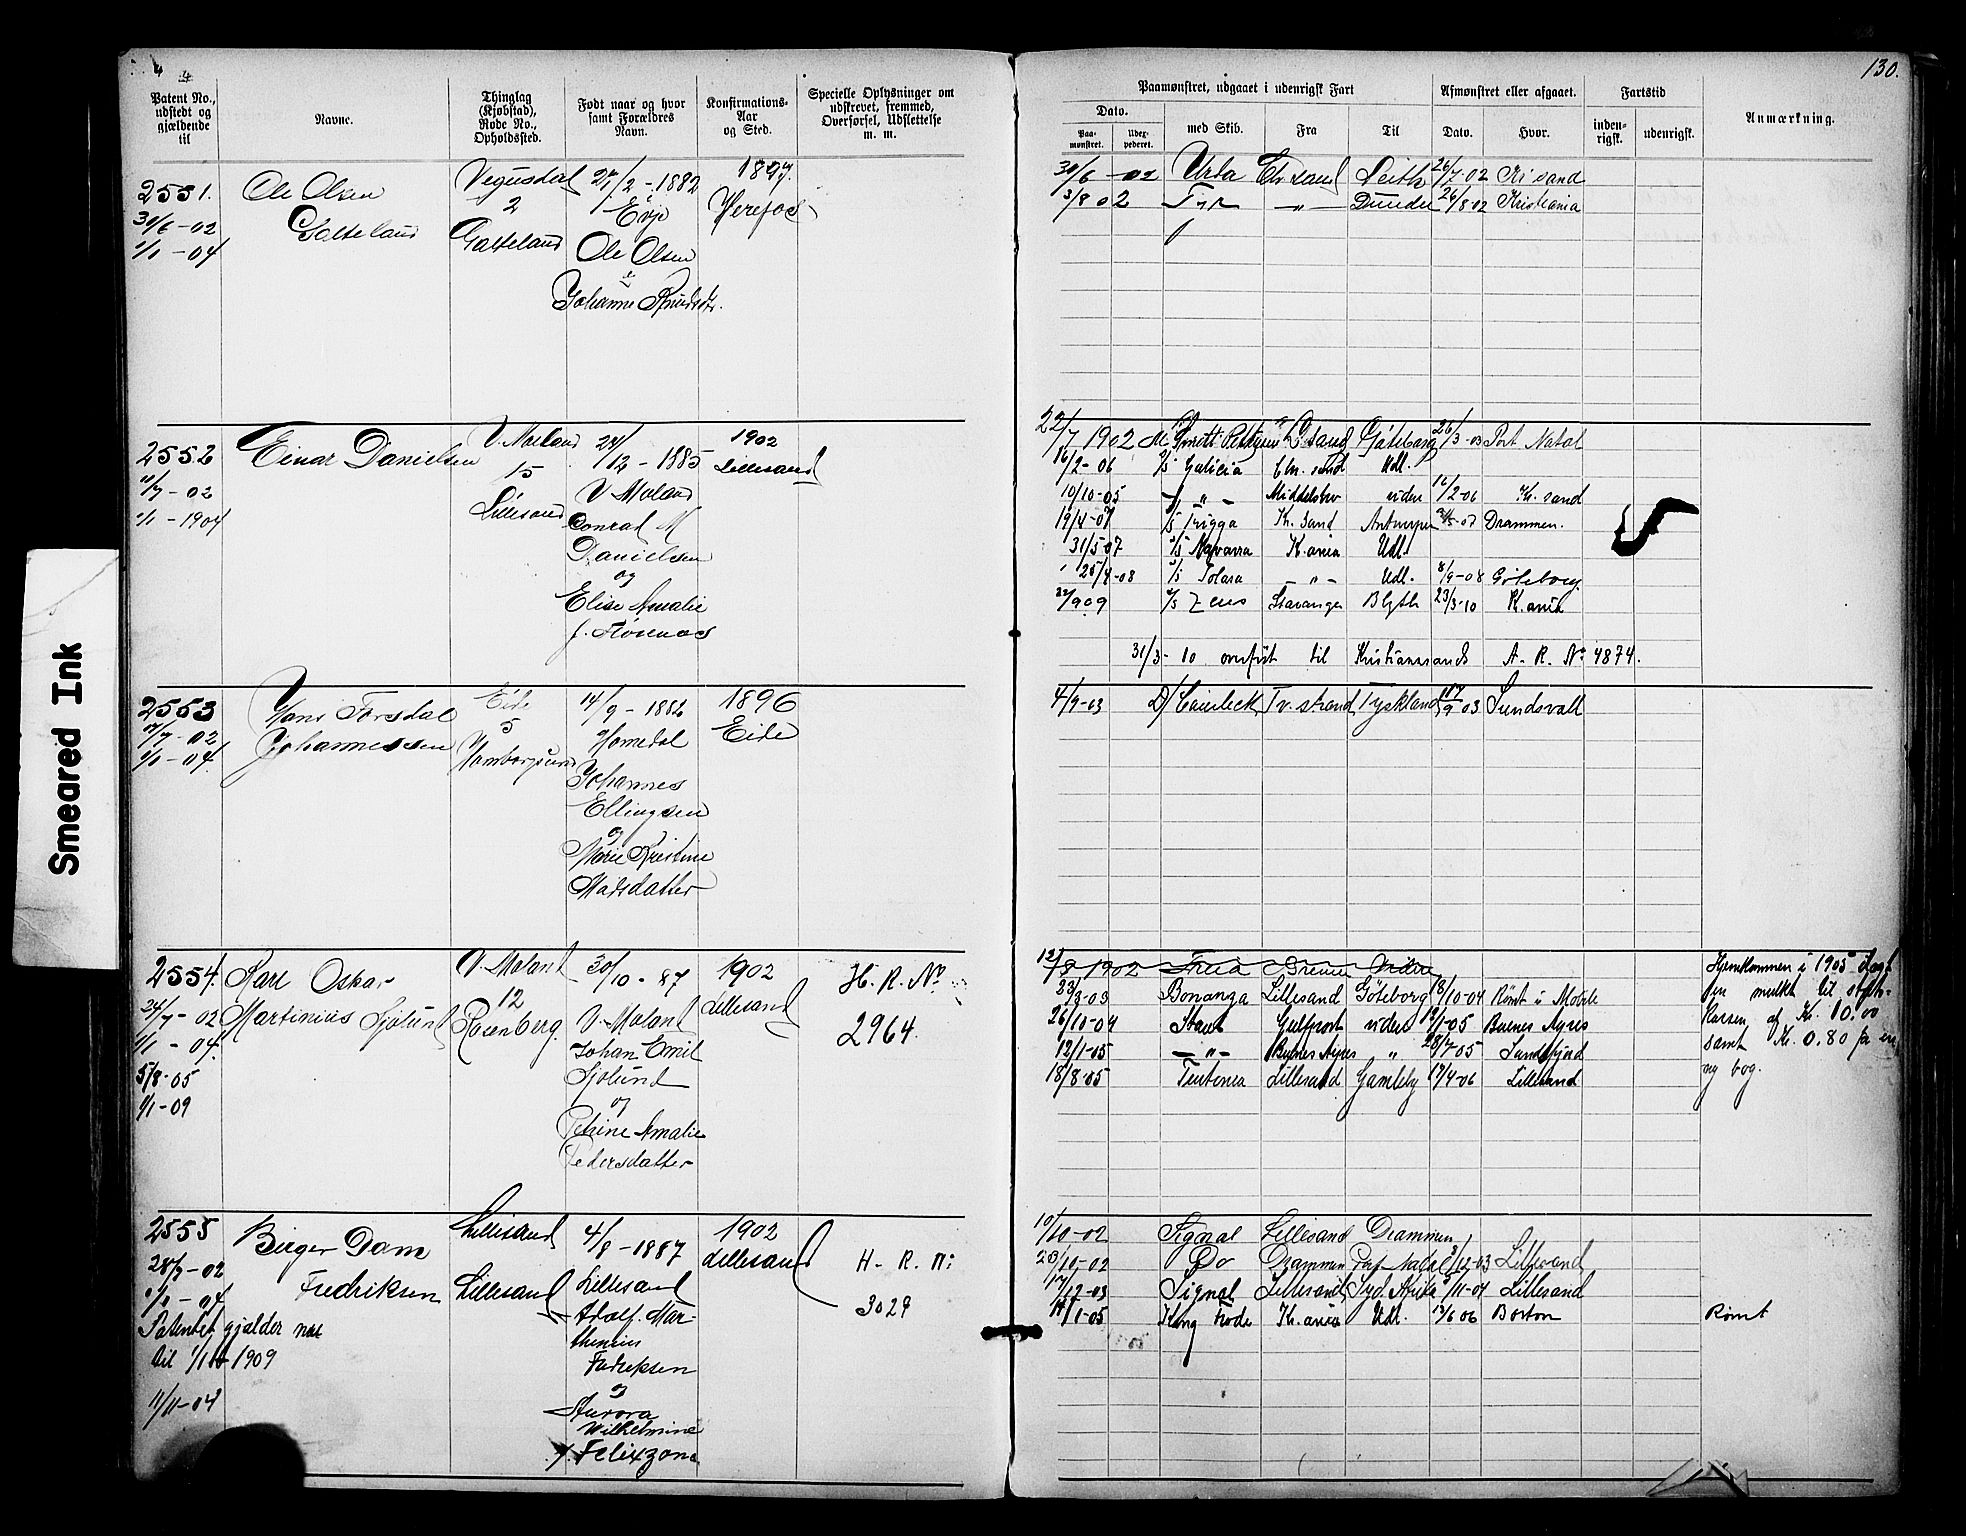 Smeared Ink
Patent No., udstedt og gjældende til
Navne.
Thinglag (Kjøbstad), Rode No., Opholdssted.
Født naar og hvor samt Forældres Navn.
Konfirmations-Aar og Sted.
Specielle Oplysninger om udskrevet, fremmed, Overførsel, Udslettelse m. m.
2551.
30/6-02
1/1-04
Ole Olsen
Galteland
Vegusdal
2
Galteland
/2-1882
Evje
Ole Olsen
Johanne Knudsdtr.
1897.
Herefos
2552
11/7-02
1/1-1904
Einar Danielsen
V. Moland
15
Lillesand
24/12-1885
V Moland
Conrad M
Danielsen
og
Elise Amalie
1902
Lillesand
2553
17/7-02
1/1-04.
Hans Forsdal
Johannessen
Eide
5
Hamborgsund
14/9-1882
Homedal
Johannes
Ellingsen
og
Marie Kristine
Madsdatter
1896
Eide
2554.
24/7-02
1/1-04.
5/8-05
1/1-09
Karl Oskar
Martinius Sjølund
V. Moland
12
Rosenberg
30/10-87
V. Moland
Johan Emil
Sjølund
og
Petrine Amalie
Pedersdatter
1902
Lillesand
H. R. No
2964.
2555
28/7-02
1/1-04
Patentet gjælder nu
til 1/1 1909
11/11-04
Birger Dam
Fredriksen
Lillesand
Lillesand
4/8-1887
Lillesand
Adolf Mar-
thinius
Fredriksen
og
Aurora
Wilhelmine
f. Felixzona
1902
Lillesand
H. R. No
3029
130.
Paamønstret, udgaaet i udenrigsk Fart
Afmønstret eller afgaaet.
Fartstid
Anmærkning.
Dato.
Paa-mønstret.
Udex-pederet.
med Skib.
Fra
Til
Dato.
Hvor.
inden-rigsk.
udenrigsk.
30/6-02 Urda Chr sand Leith 26/7-02 Kr sand
3/8 02 Tyr -"- Dundee 26/8-02 Kristiania
22/7 1902 L sand Göteborg 26/3-03 Port Natal
16/2-06 S/S Galicia Chr. sand Udl.
10/10-05 -"- Middelsbro viden 16/2-06 Kr. sand
19/4-07 S/S Frigga Kr. sand Antwerpen Drammen.
31/5-07 S/S Navarra K.ania Udl.
25/4-08 S/S Solara -"- Udl. 8/9-08 Göteborg.
S/S Zeus Stavanger Blyth 23/3-10 K.ania
31/3-10 overført til Kristianssands A. R. No 4874.
4/9-03 Tv. strand Tyskland 03 Sundsvall
1902 Freia Bremen viden
23/3-03 Bonanza Lillesand Göteborg 18/10-04 Rømt i Mobile
26/10-04 Gulfport viden 12/1-05 Buenos Ayres
12/1-05 -"- Buenos Ayres " 28/7-05
18/8-05 Teutonia Lillesand Gamleby 17/4-06 Lillesand
Hjemkommen i 1905
den mulkt til
kassen af Kr. 10.00
samt Kr. 0.80 for en
ny bog.
10/10-02 Signal Lillesand Drammen
23/10-02 Do Drammen Port Natal /12-03 Lillesand
17/12-03 Signal Lillesand Syd Afrika /11-04 Lillesand
14/1-05 Kong Frode Kr. ania Udl. 13/6 06 Boston
Rømt